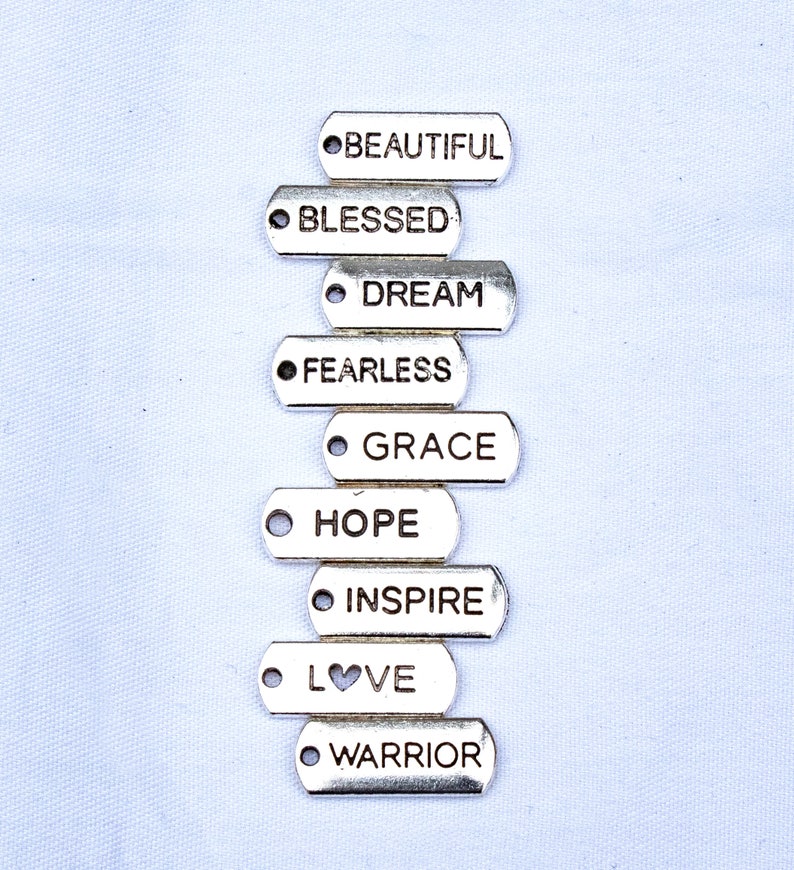 BEAUTIFUL
BLESSED
DREAM
FEARLESS
GRACE
HOPE
INSPIRE
L♥VE
WARRIOR